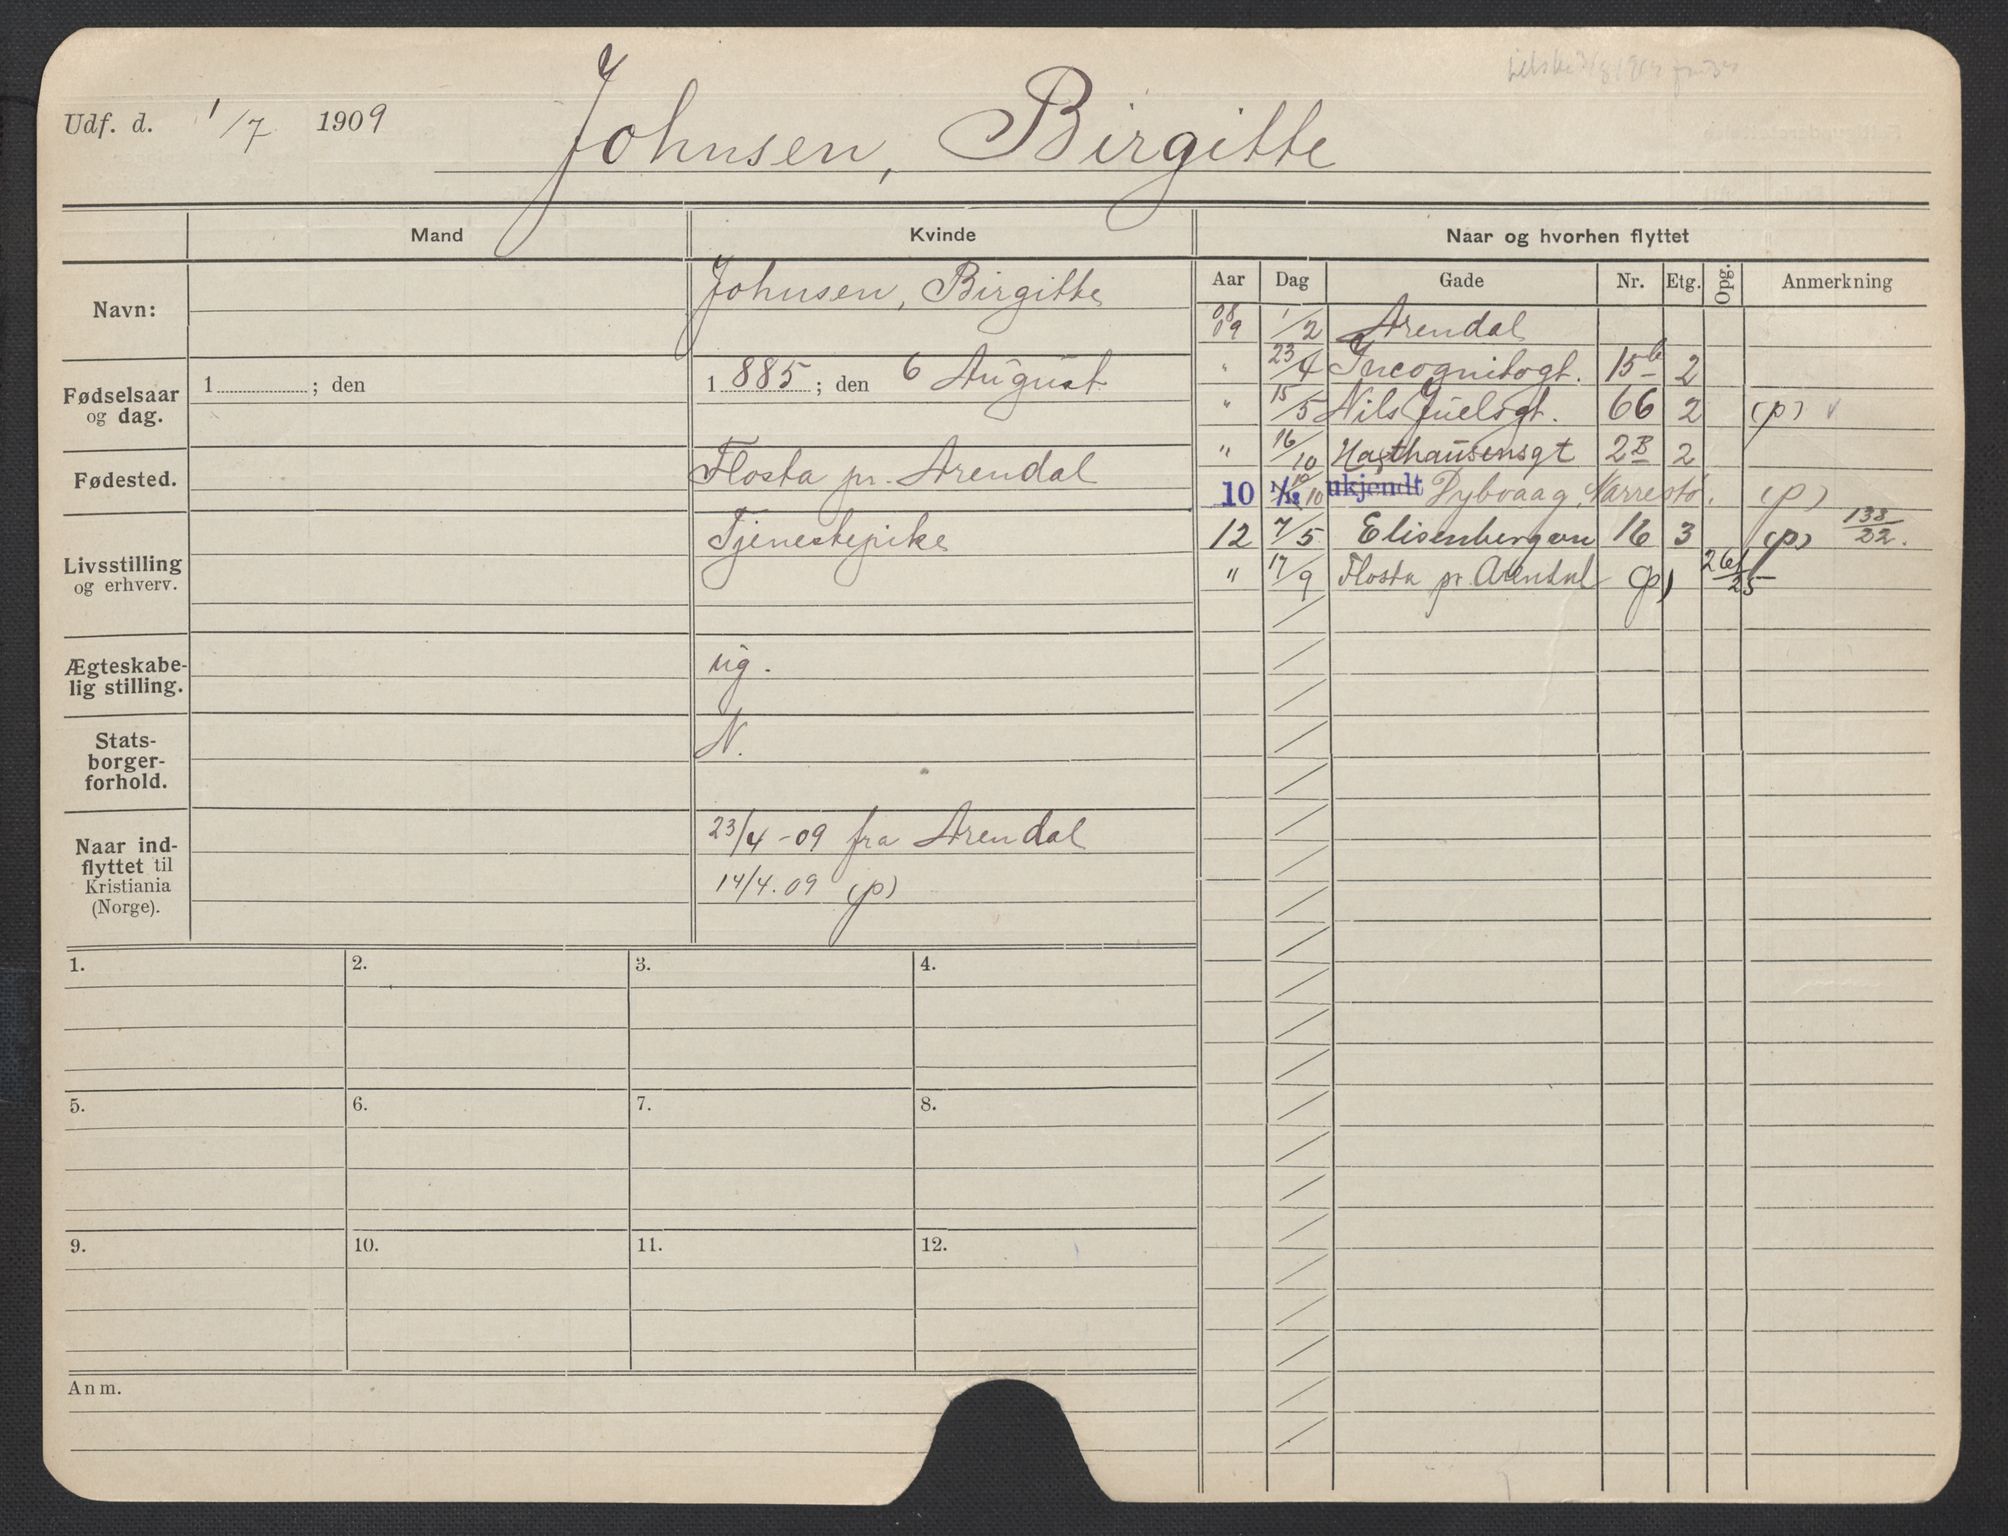 Udf. d. 1/7 1909 Johnsen, Birgitte
Mand Kvinde Naar og hvorhen flyttet
Aar Dag Gade Nr. Etg. Opg. Anmerkning
Navn: Johnsen, Birgitte
Fødselsaar og dag. 1 ; den 1 885 ; den 6 August
Fødested. Flosta pr. Arendal
Livsstilling og erhverv. Tjenestepike
Ægteskabe-
lig stilling. ug.
Stats-
borger-
forhold. N.
Naar ind-
flyttet til
Kristiania
(Norge).
23/4-09 fra Arendal
14/4.09 (p)
08
09 1/2 Arendal
" 23/4 Incognitogt. 15b 2
" 15/5 Nils Juelsgt. 66 2 (p) v
" 16/10 Haxthausensgt 2B 2
10 10/10 ukjendt Dybvaag, Narrestø. (p)
12 7/5 Elisenbergvn 16 3 (p) 138/22.
" 17/9 Flosta pr. Arendal (p) 261/25
1. 2. 3. 4.
5. 6. 7. 8.
9. 10. 11. 12.
Anm.